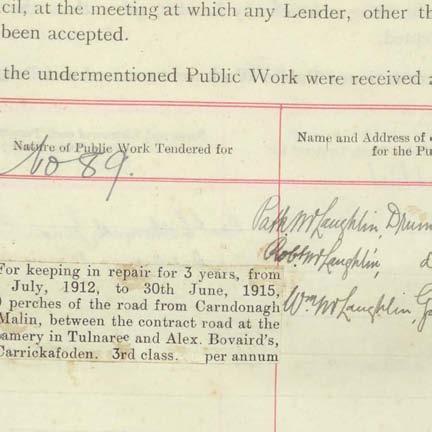 cil, at the meeting at which any Lender, other th
been accepted.
the undermentioned Public Work were received a
Nature of Public Work Tendered for
Name and Address of
for the Pu
No 89.
Patk. McLaughlin, Drum
Robt. McLaughlin, d
For keeping in repair for 3 years, from
July, 1912, to 30th June, 1915,
perches of the road from Carndonagh
Wm. McLaughlin, Ga
Malin, between the contract road at the
amery in Tulnaree and Alex. Bovaird's,
Carrickafoden. 3rd class. per annum